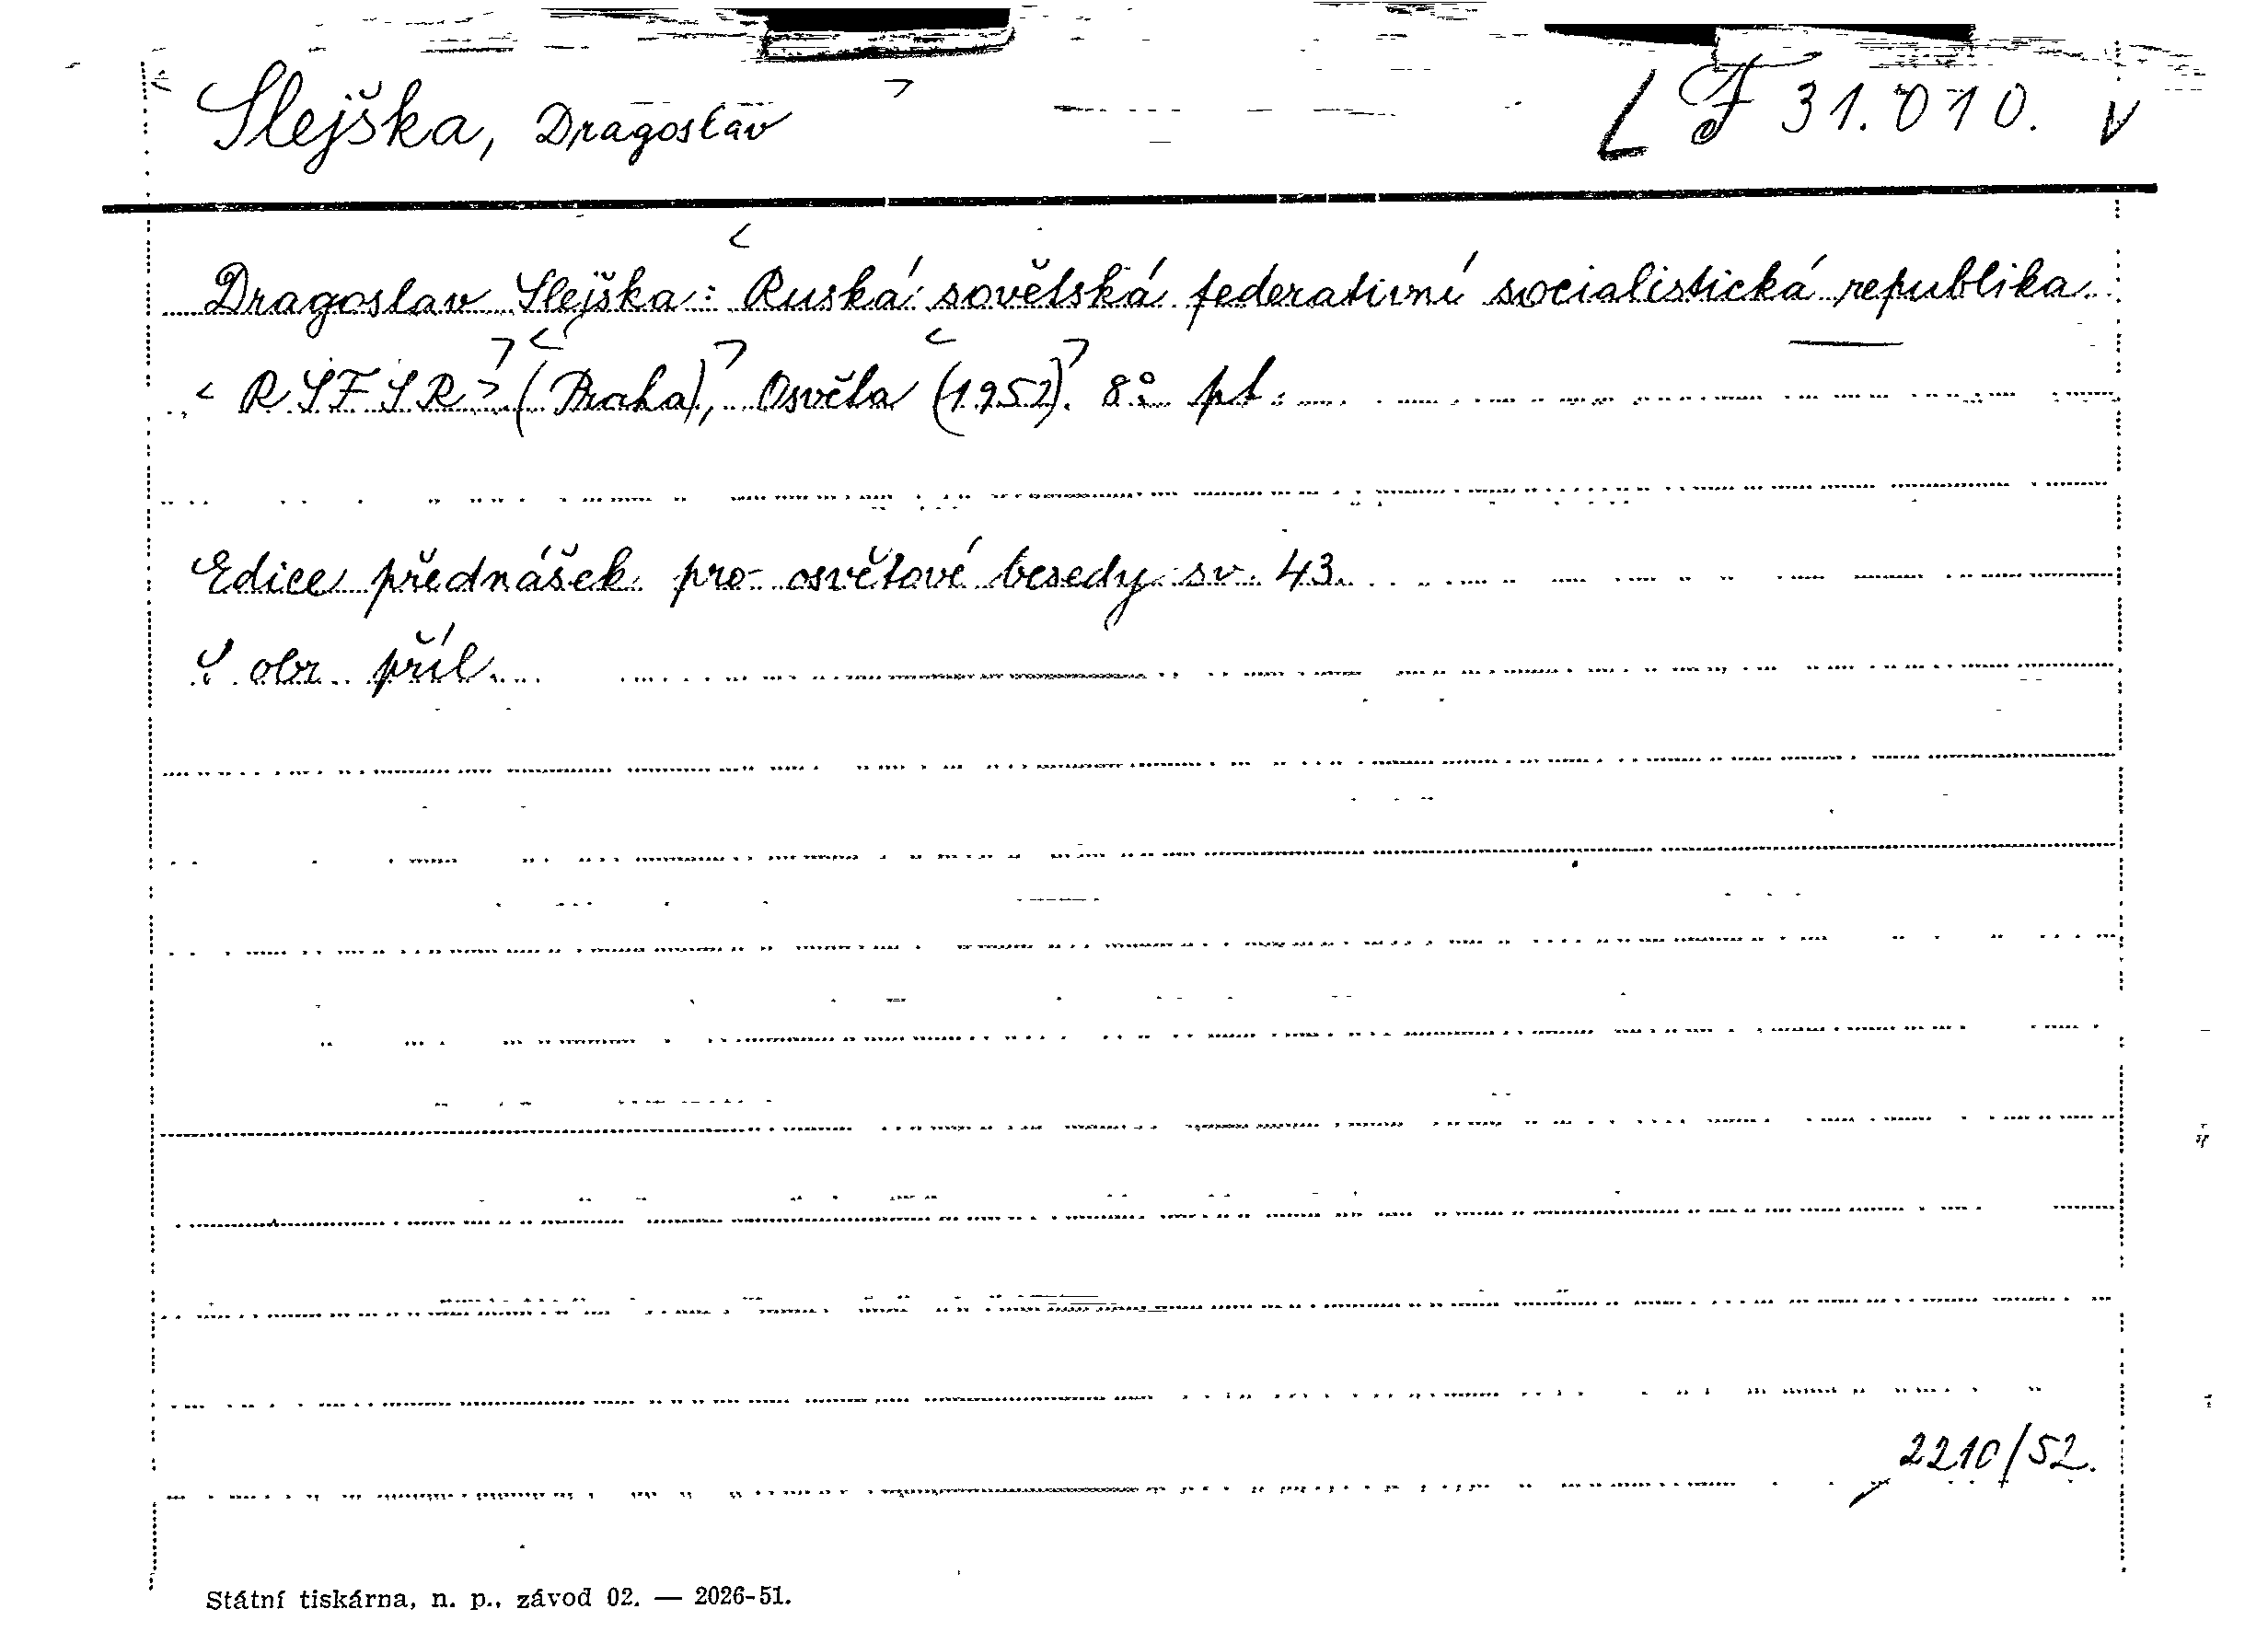 Slejška, Dragoslav
F 31.010. V
Dragoslav Slejška: Ruská sovětská federativní socialistická republika
< RSFSR > (Praha), Osvěta (1952). 8° pt.
Edice přednášek pro osvětové besedy sv. 43.
S obr. příl.
2210/52.
Státní tiskárna, n. p., závod 02. — 2026-51.